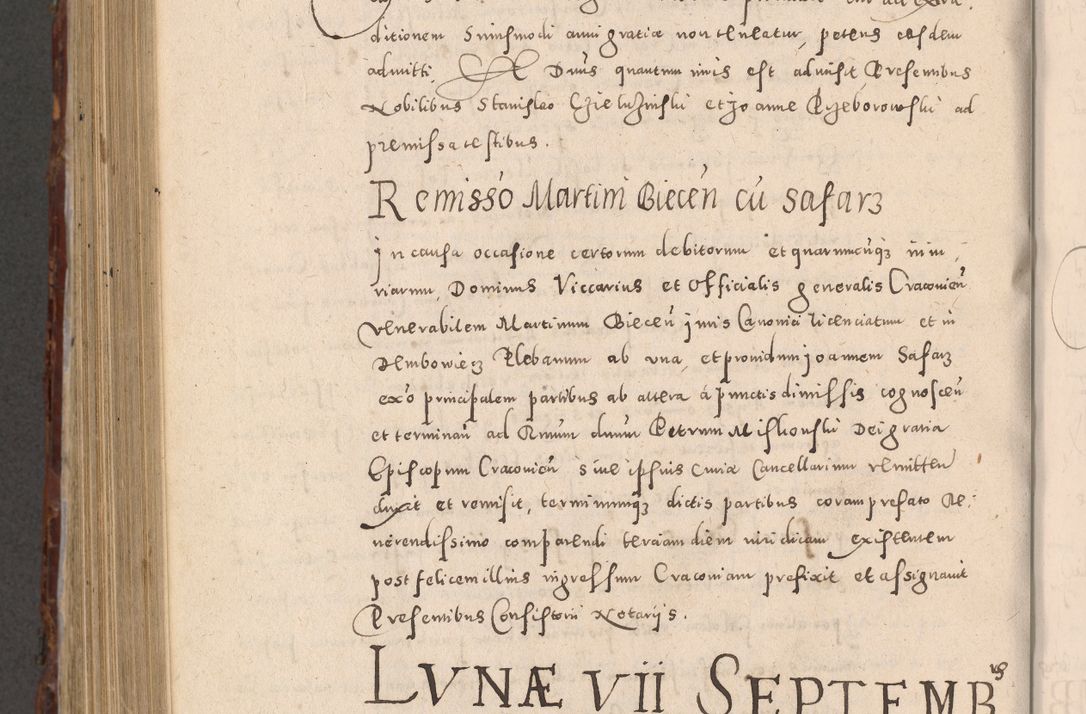 ditionem suiusmodi animi gratiæ non teneatur, petens easdem
admitti, Et Dnus quantum iuris est admisit Presentibus
Nobilibus Stanislao et Joanne Przeborowski ad
premissa testibus.
Remissō Martini Biecen̄ cū Safarz
In causa occasione certorum debitorum et quarumcūqz iniu,
riarum, Dominus Viccarius et Officialis generalis Cracovien̄
venerabilem Martinum Biecen̄ juris Canonici licenciatum et in
Dembowiecz Plebanum ab una, et providum joannem Safarz
ex ō principalem partibus ab altera á punctis dimissis cognoscen̄
et terminan̄ ad Rmum dnum Petrum Miskouski Dei gratia
Episcopum Cracovien̄ siue ipsius Curiæ Cancellarium remitten̄
duxit et remisit, terminumqz dictis partibus coram prefato Re,
uerendissimo comparendi terciam diem iuridicam existentem
post felicem illius ingressum Cracoviam prefixit et assignauit
Presentibus Consistorii Notarijs.
LVNÆ VII SEPTEMBris